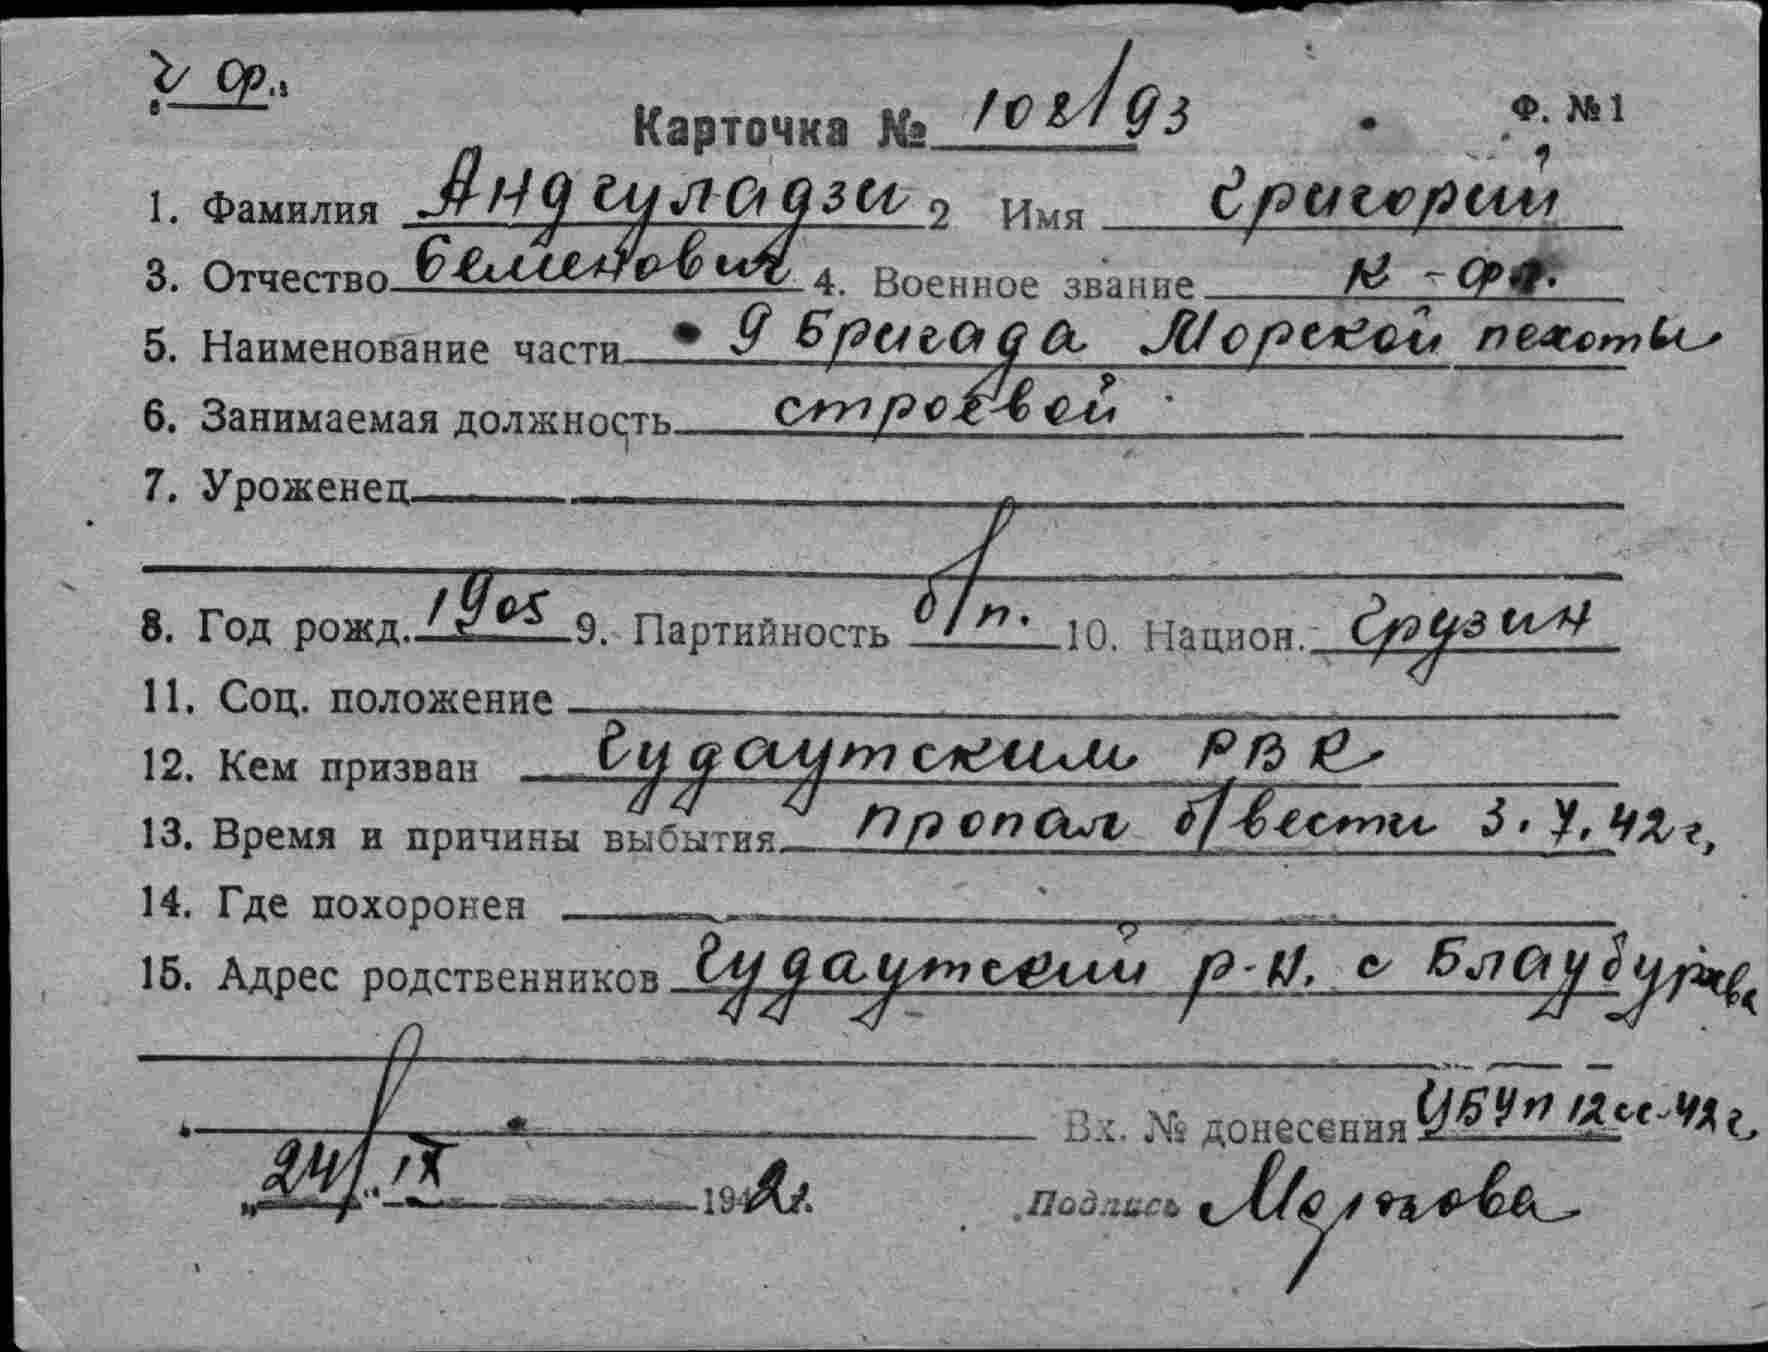 ч ф.
Карточка № 102/93 Ф. №1
1. Фамилия Андгуладзи 2 Имя Григорий
3. Отчество Семенович 4. Военное звание к-фл.
5. Наименование части 9 Бригада Морской пехоты
6. Занимаемая должность строевой
7. Уроженец
8. Год рожд. 1905 9. Партийность б/п. 10. Национ. Грузин
11. Соц. положение
12. Кем призван Гудаутским РВК
13. Время и причины выбытия пропал б/вести 3.7.42г,
14. Где похоронен
15. Адрес родственников Гудаутский р-н. с
Вх. № донесения 42г,
„24“ IX 1942г. Подпись